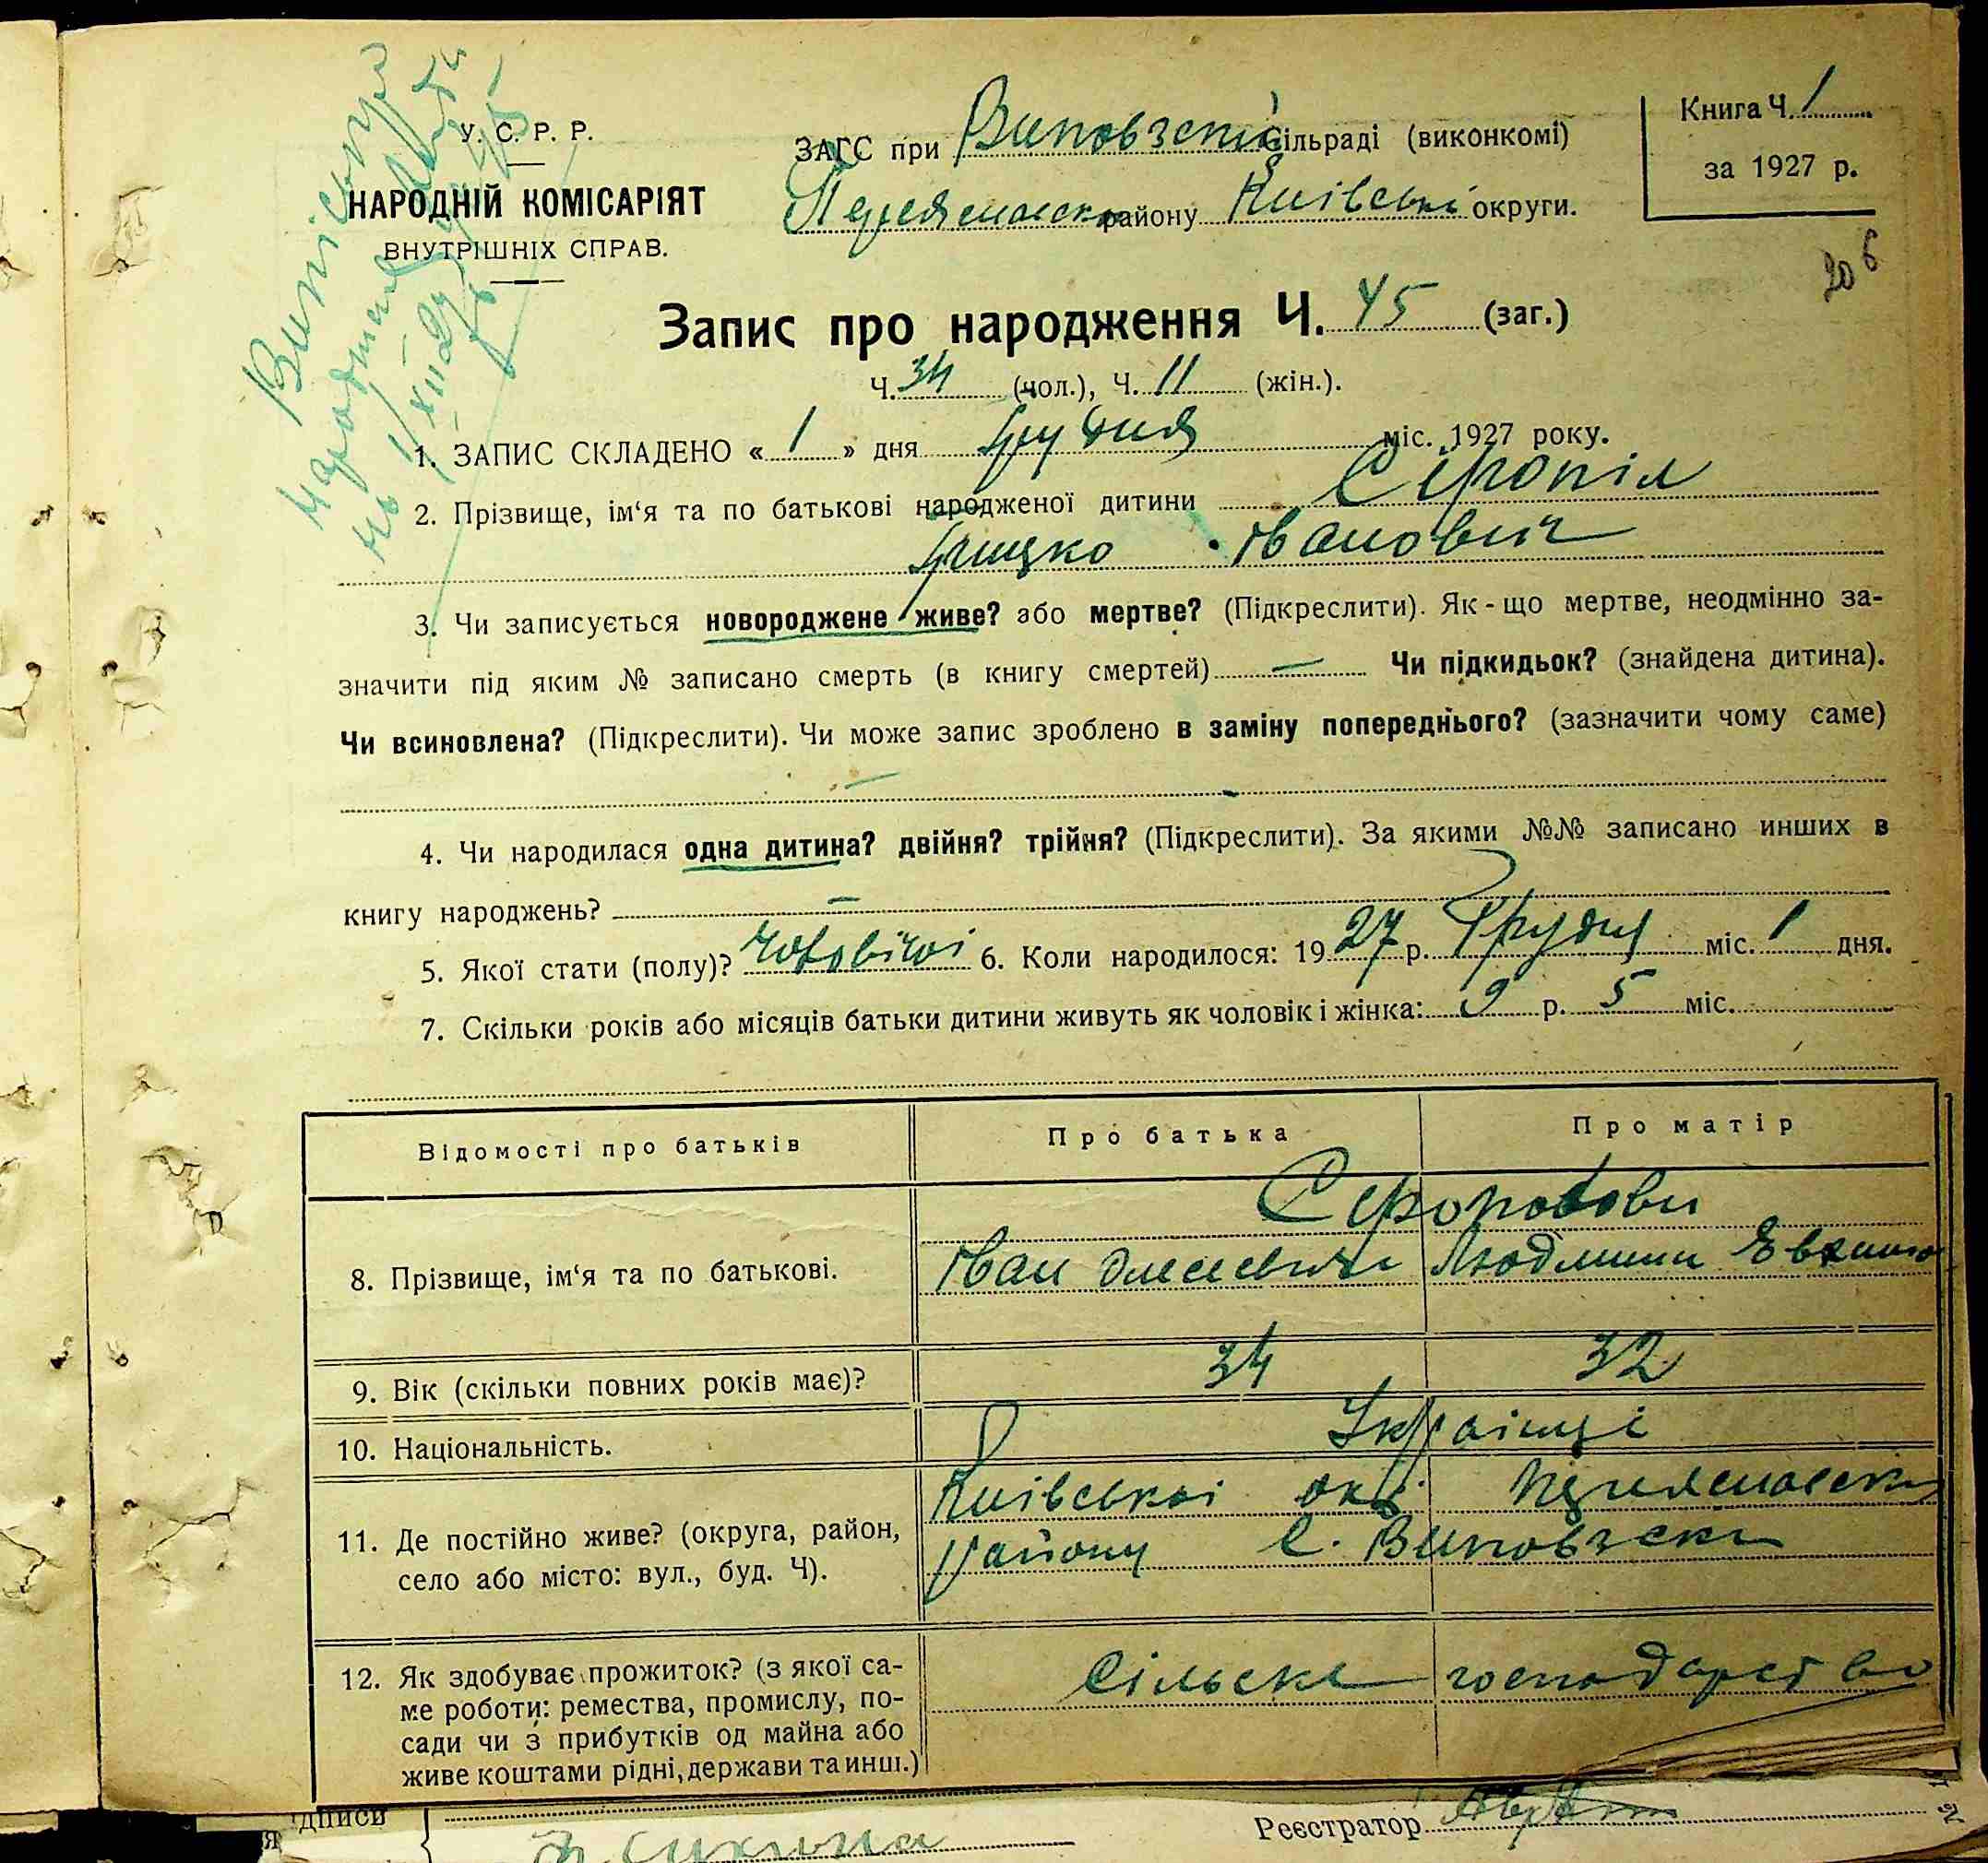 У. С. Р. Р.
НАРОДНІЙ КОМІСАРІЯТ
ВНУТРІШНІХ СПРАВ.
ЗАГС при Виповзській сільраді (виконкомі)
Переяславск району Київські округи.
Книга Ч. 1
за 1927 р.
206
Запис про народження Ч. 45 (заг.)
Ч. 34 (чол.), Ч. 11 (жін.).
1. ЗАПИС СКЛАДЕНО « 1 » дня грудня міс. 1927 року.
2. Прізвище, ім‘я та по батькові народженої дитини
Грицко Іванович
3. Чи записується новороджене живе? або мертве? (Підкреслити). Як-що мертве, неодмінно за-
значити під яким № записано смерть (в книгу смертей) — Чи підкидьок? (знайдена дитина).
Чи всиновлена? (Підкреслити). Чи може запис зроблено в заміну попереднього? (зазначити чому саме)
—
4. Чи народилася одна дитина? двійня? трійня? (Підкреслити). За якими №№ записано инших в
книгу народжень? —
5. Якої стати (полу)? чоловічої 6. Коли народилося: 1927 р. Грудня міс. 1 дня.
7. Скільки років або місяців батьки дитини живуть як чоловік і жінка: 9 р. 5 міс.
Відомості про батьків Про батька Про матір
8. Прізвище, ім‘я та по батькові.
Іван Людмили
9. Вік (скільки повних років має)? 34 32
10. Національність. Українці
11. Де постійно живе? (округа, район,
село або місто: вул., буд. Ч).
Київськоі окр. Переяславск
району с. Виповзски
12. Як здобуває прожиток? (з якої са-
ме роботи: ремества, промислу, по-
сади чи з прибутків од майна або
живе коштами рідні, держави та инш.)
Сільске господарство
дписи
Реєстратор